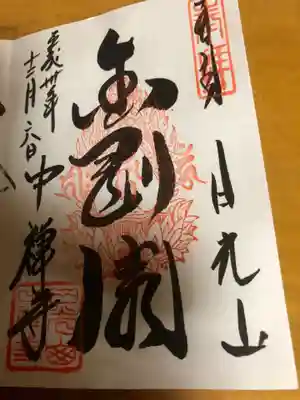 奉拝　日光山
金剛閣
平成卅年
十二月六日　中禅寺